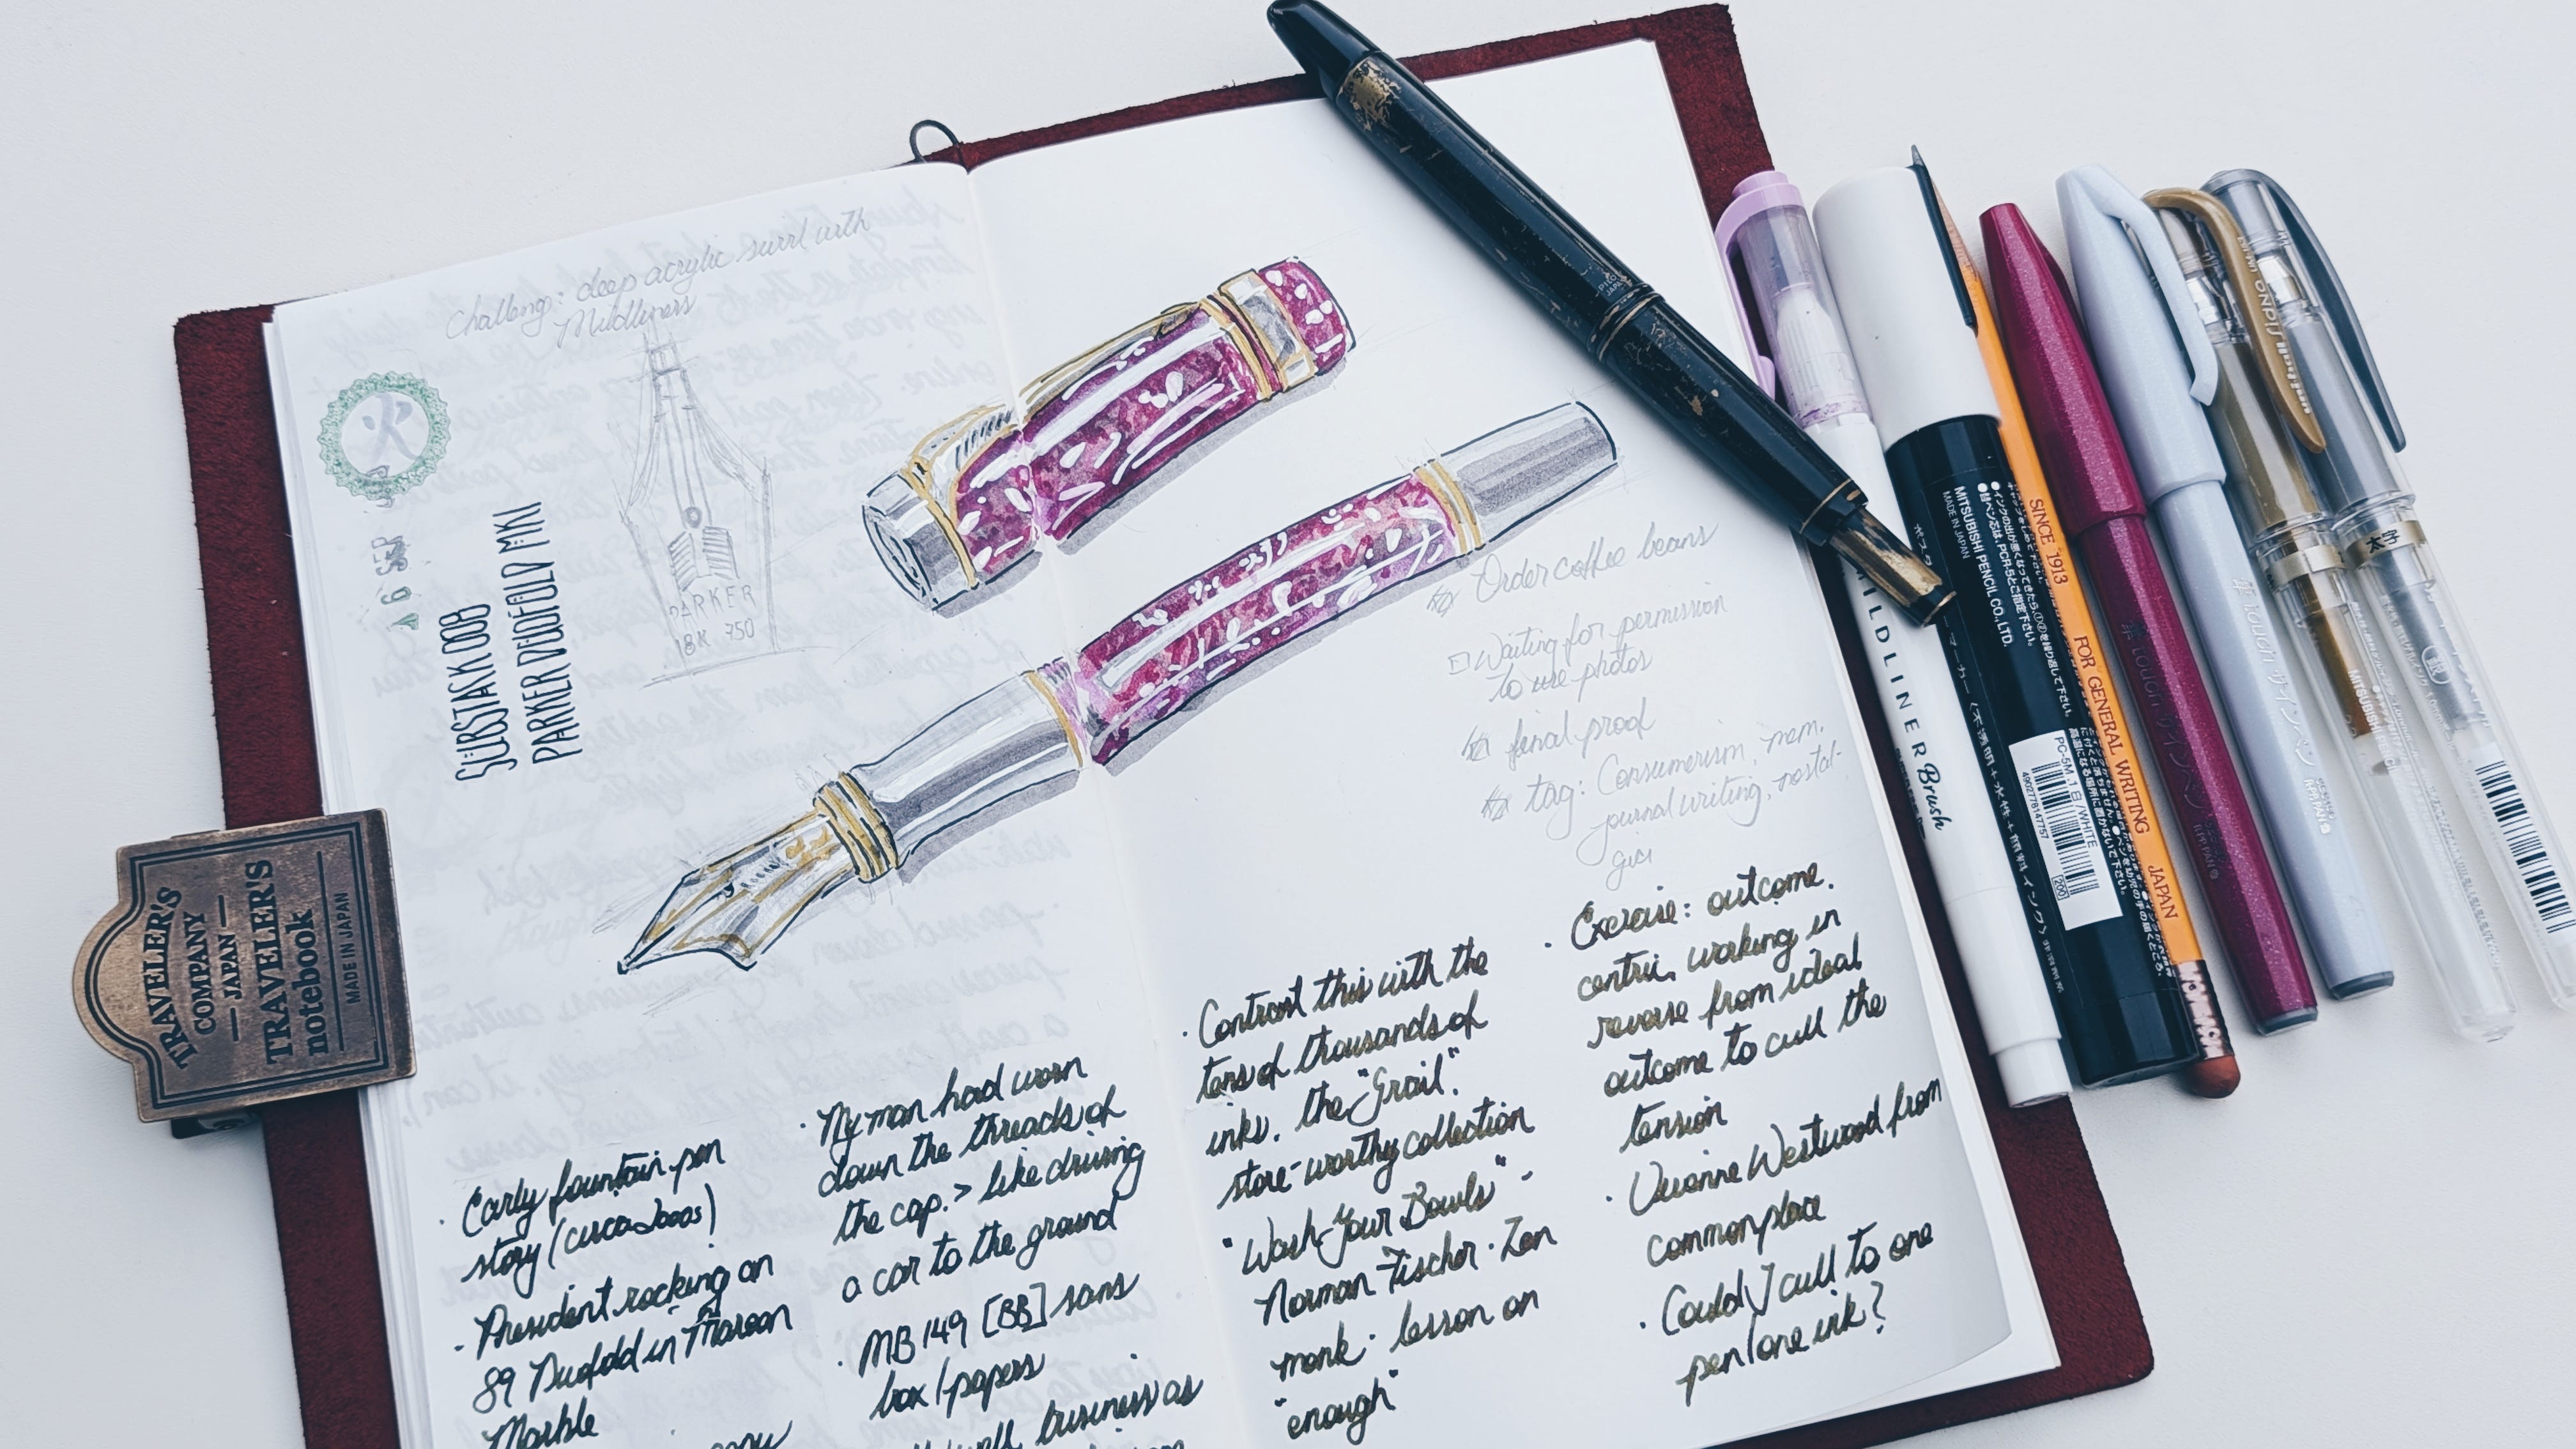 Challenge: deep acrylic swirl with
Mildliners
火
06 SEP
SUBSTACK 008
PARKER DUOFOLD MKI
PARKER
18K 750
TRAVELER'S
COMPANY
JAPAN
TRAVELER'S
notebook
MADE IN JAPAN
· Early fountain pen
story (circa 2000s)
· President rocking an
89 Duofold in Maroon
Marble
· My man had worn
down the threads of
the cap. > like driving
a car to the ground
· MB 149 [BB] sans
box/papers
well, business as
Order coffee beans
Waiting for permission
to use photos
final proof
tag: Consumerism, mem,
journal writing, nostal-
gia
· Contrast this with the
tens of thousands of
inks, the "Grail".
store-worthy collection
· "Wash Your Bowls" -
Norman Fischer · Zen
monk · lesson on
"enough"
· Exercise: outcome
centric, working in
reverse from ideal
outcome to cull the
tension
· Vivienne Westwood from
commonplace
· Could I cull to one
pen/one ink?
PILOT
JAPAN
MILDLINER Brush
MITSUBISHI PENCIL CO., LTD.
MADE IN JAPAN
PC-5M 1 白/WHITE
4902778147757
200
SINCE 1913 FOR GENERAL WRITING JAPAN
MITSUBISHI
筆 touch サインペン
筆 touch サインペン
uni-ball SIGNO
MITSUBISHI
太字